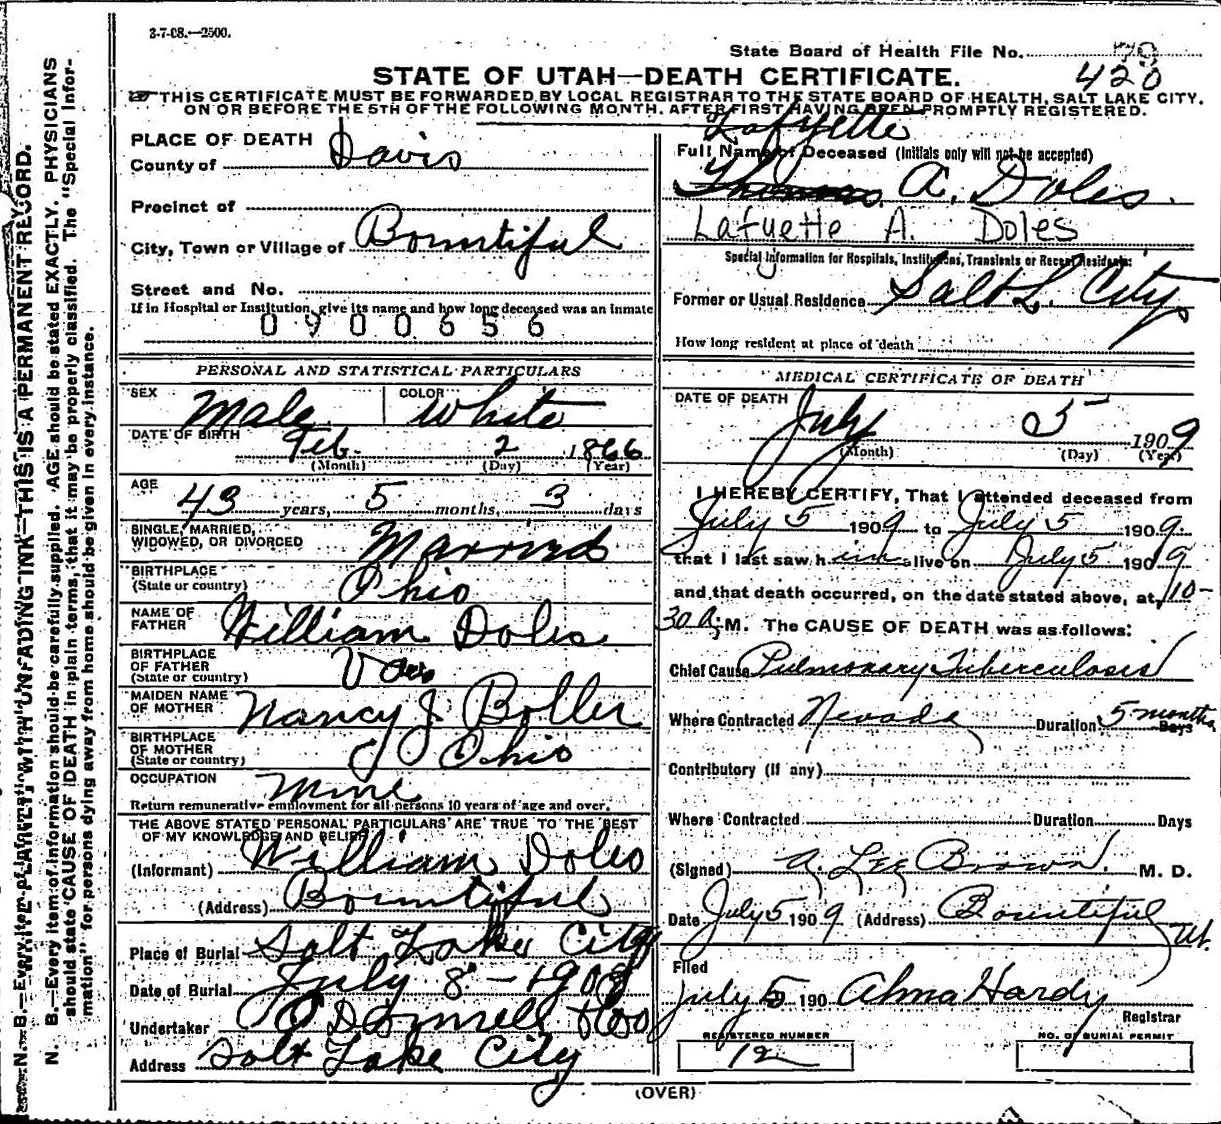 3-7-08.—2500.
State Board of Health File No. 70
420
STATE OF UTAH—DEATH CERTIFICATE.
THIS CERTIFICATE MUST BE FORWARDED BY LOCAL REGISTRAR TO THE STATE BOARD OF HEALTH, SALT LAKE CITY,
ON OR BEFORE THE 5TH OF THE FOLLOWING MONTH, AFTER FIRST HAVING BEEN PROMPTLY REGISTERED.
N. B.—Every item of WRITE PLAINLY WITH UNFADING INK—THIS IS A PERMANENT RECORD.
N. B.—Every item of information should be carefully supplied. AGE should be stated EXACTLY. PHYSICIANS
should state CAUSE OF DEATH in plain terms, that it may be properly classified. The "Special Infor-
mation" for persons dying away from home should be given in every instance.
PLACE OF DEATH
County of Davis
Precinct of
City, Town or Village of Bountiful
Street and No.
If in Hospital or Institution, give its name and how long deceased was an inmate
0900656
PERSONAL AND STATISTICAL PARTICULARS
SEX Male COLOR White
DATE OF BIRTH Feb. 2 1866
(Month) (Day) (Year)
AGE 43 years, 5 months, 3 days
SINGLE, MARRIED,
WIDOWED, OR DIVORCED Married
BIRTHPLACE
(State or country) Ohio
NAME OF
FATHER William Doles
BIRTHPLACE
OF FATHER
(State or country) Va
MAIDEN NAME
OF MOTHER Nancy J Boller
BIRTHPLACE
OF MOTHER
(State or country) Ohio
OCCUPATION Mine
Return remunerative employment for all persons 10 years of age and over.
THE ABOVE STATED PERSONAL PARTICULARS ARE TRUE TO THE BEST
OF MY KNOWLEDGE AND BELIEF
(Informant) William Doles
(Address) Bountiful
Place of Burial Salt Lake City
Date of Burial July 8 - 1909
Undertaker
Address Salt Lake City
Lafyette
Full Name of Deceased (Initials only will not be accepted)
Thomas A. Doles.
Lafyette A. Doles
Special Information for Hospitals, Institutions, Transients or Recent Residents:
Former or Usual Residence Salt L. City
How long resident at place of death
MEDICAL CERTIFICATE OF DEATH
DATE OF DEATH July 5 1909
(Month) (Day) (Year)
I HEREBY CERTIFY, That I attended deceased from
July 5 1909 to July 5 1909.
that I last saw him alive on July 5 1909
and that death occurred, on the date stated above, at 10-
30 A. M. The CAUSE OF DEATH was as follows:
Chief Cause Pulmonary Tuberculosis
Where Contracted Nevada Duration 5 months Days
Contributory (If any)
Where Contracted Duration Days
(Signed) A. Lee Brown. M. D.
Date July 5 1909 (Address) Bountiful
Ut.
Filed
July 5 190 Alma Hardy
Registrar
REGISTERED NUMBER
12
NO. OF BURIAL PERMIT
(OVER)